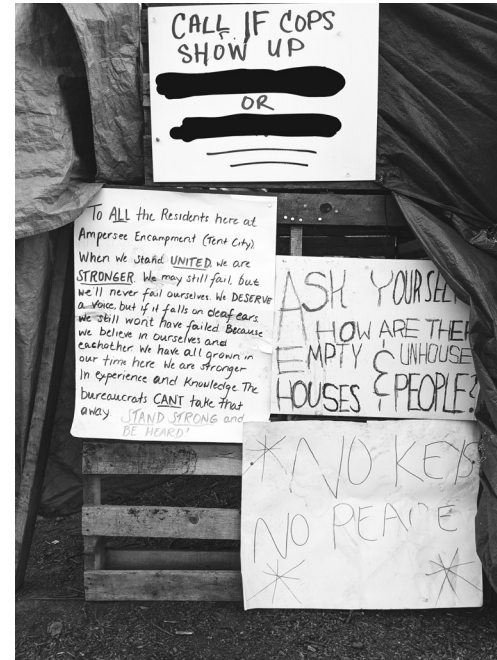 CALL IF COPS
SHOW UP
OR
To ALL the Residents here at
Ampersee Encampment (Tent City).
When we stand UNITED, we are
STRONGER. We may still fail, but
we'll never fail ourselves. We DESERVE
a voice, but if it falls on deaf ears
we still wont have failed Because
we believe in ourselves and
eachother. We have all grown in
our time here We are stronger
In experience and Knowledge. The
bureaucrats CANT take that
away. STAND STRONG and
BE HEARD!
ASK YOURSELF
HOW ARE THER
EMPTY & UNHOUSE
HOUSES & PEOPLE?
*NO KEYS
NO PEACE